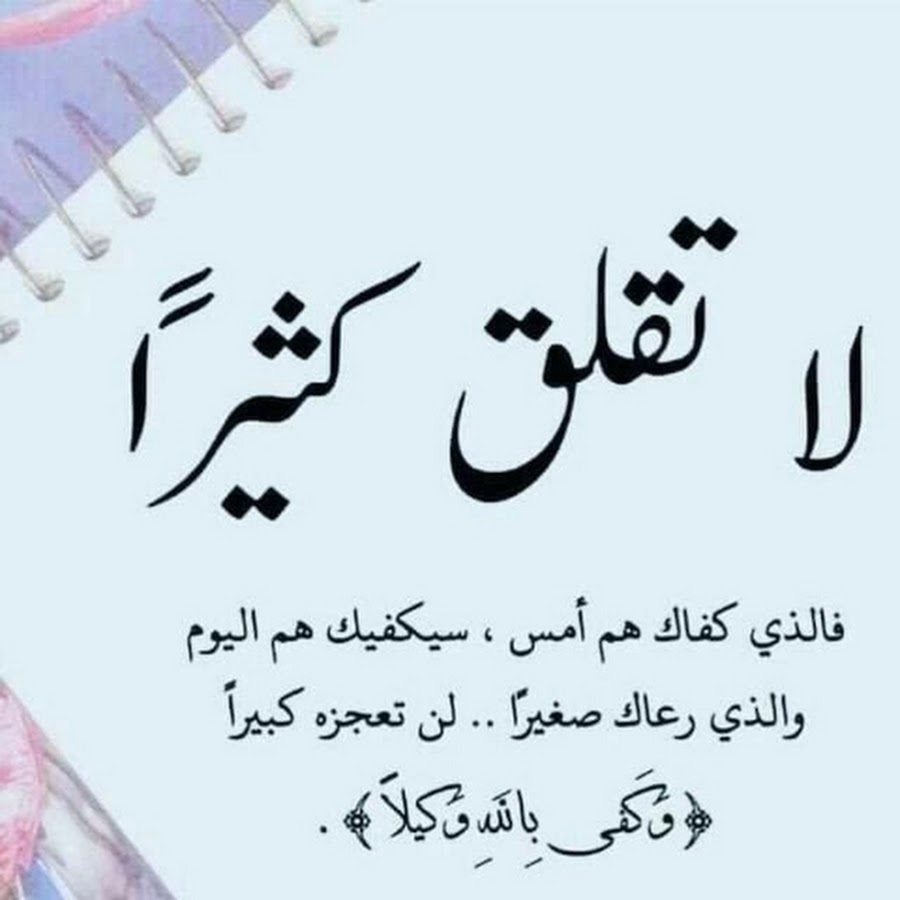 لا تقلق كثيرًا
فالذي كفاك هم أمس ، سيكفيك هم اليوم
والذي رعاك صغيرًا .. لن تعجزه كبيراً
﴿وَكَفى بِاللَّهِ وَكيلاً﴾ .